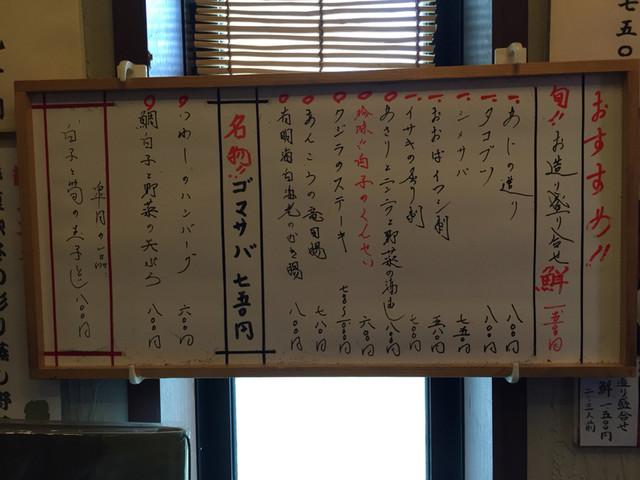 おすすめ!!
旬!! お造り盛り合せ 鮮 一五〇〇円
あじの造り 八〇〇円
タコブツ 八〇〇円
シメサバ 七五〇円
おおばイワシ刺 五八〇円
イサキの炙り刺 七〇〇円
あさりとニンニクと野菜の酒むし 八〇〇円
珍味!! 白子のくんせい 六〇〇円
クジラのステーキ
あんころの竜田揚 七八〇円
有明海白海老のかき揚 八〇〇円
名物!! ゴマサバ 七五〇円
いわしのハンバーグ 六〇〇円
鯛白子と野菜の天ぷら 八〇〇円
皐月の一品
白子と筍の玉子とじ 八〇〇円
七五〇
造り盛合せ
鮮 一五〇〇円
二~三人前